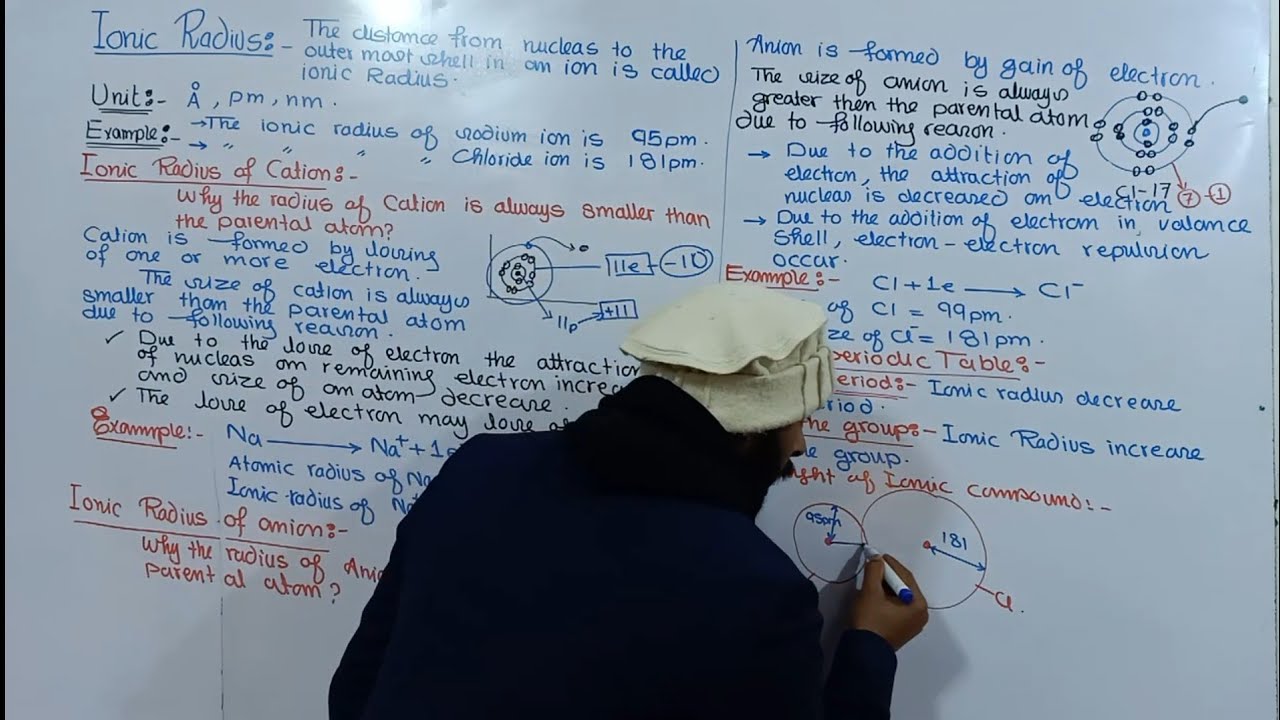 Ionic Radius:-
The distance from nucleas to the
outer most shell in an ion is called
ionic Radius.
Unit:- Å, pm, nm.
Example:- →The ionic radius of sodium ion is 95pm.
→ " " " " Chloride ion is 181pm.
Ionic Radius of Cation:-
Why the radius of Cation is always smaller than
the parental atom?
Cation is formed by losing
of one or more electron.
The size of cation is always
smaller than the parental atom
due to following reason.
✓ Due to the lose of electron the attraction
of nucleas on remaining electron
and size of an atom decrease.
✓ The lose of electron may lose
11e -10
11p +11
Example:- Na → Na⁺ + 1e
Atomic radius of
Ionic radius of
Ionic Radius of anion:-
Why the radius of
parental atom?
Anion is formed by gain of electron.
The size of anion is always
greater then the parental atom
due to following reason.
→ Due to the addition of
electron, the attraction of
nucleas is decreased on electron
Cl-17
7 -1
→ Due to the addition of electron in valance
shell, electron-electron repulsion
occur.
Example:- Cl + 1e → Cl⁻
of Cl = 99pm.
of Cl⁻ = 181pm.
periodic Table:-
Ionic radius decrease
the group:- Ionic Radius increase
group.
of Ionic compound:-
95pm
181
Cl.